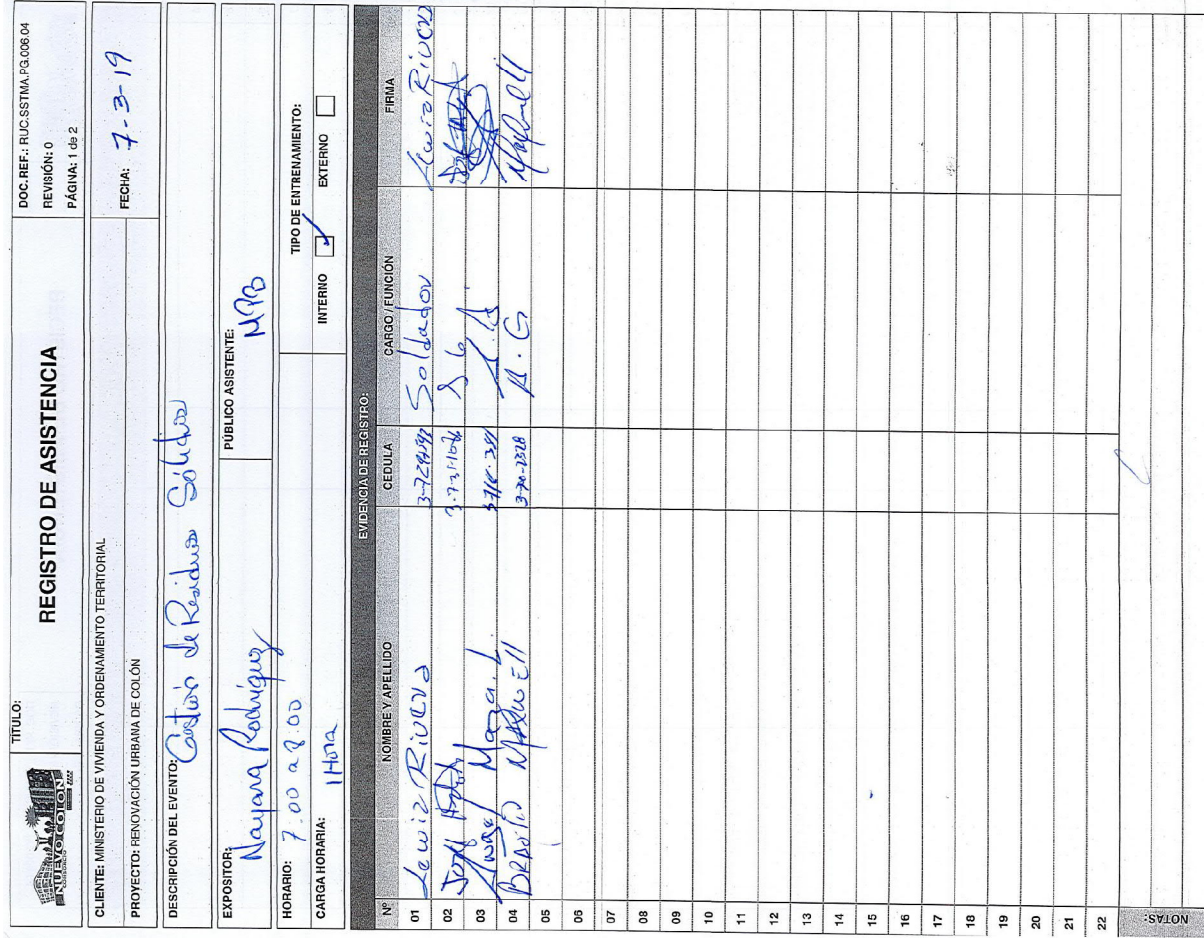 NUEVO COLON
CONSORCIO
TÍTULO:
REGISTRO DE ASISTENCIA
DOC. REF.: RUC.SSTMA.PG.006.04
REVISIÓN: 0
PÁGINA: 1 de 2
CLIENTE: MINISTERIO DE VIVIENDA Y ORDENAMIENTO TERRITORIAL
PROYECTO: RENOVACIÓN URBANA DE COLÓN
FECHA: 7-3-19
DESCRIPCIÓN DEL EVENTO: Gestión de Residuos Sólidos
EXPOSITOR: Nayara Rodríguez
PÚBLICO ASISTENTE:
HORARIO: 7:00 a 8:00
CARGA HORARIA: 1 Hora
TIPO DE ENTRENAMIENTO:
INTERNO EXTERNO
EVIDENCIA DE REGISTRO:
Nº NOMBRE Y APELLIDO CEDULA CARGO / FUNCIÓN FIRMA
01 Lewiz Rivera Soldador Lewiz Rivera
02
03
04 MAXWELL A.G
05
06
07
08
09
10
11
12
13
14
15
16
17
18
19
20
21
22
NOTAS: